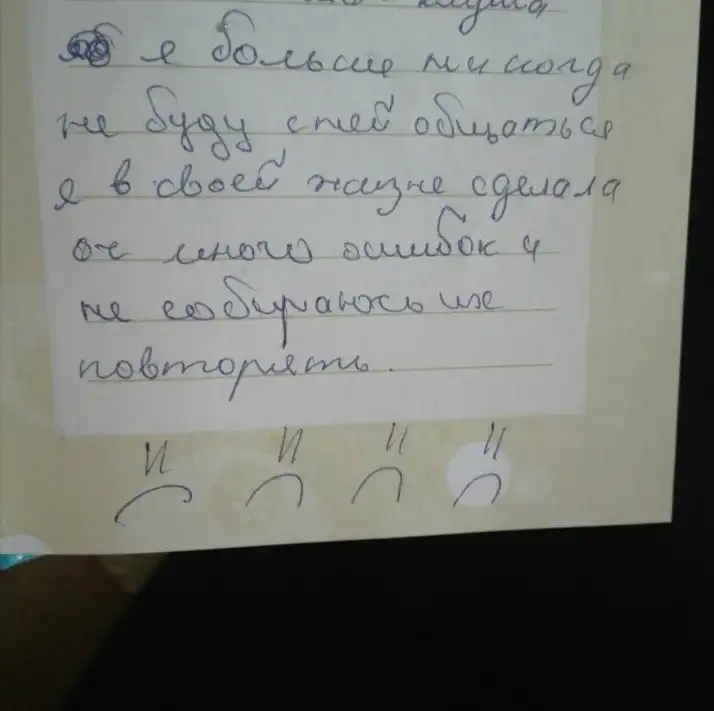 я больше никогда
не буду с ней общаться
я в своей жизне сделала
оч много ошибок и
не собираюсь их
повторять.